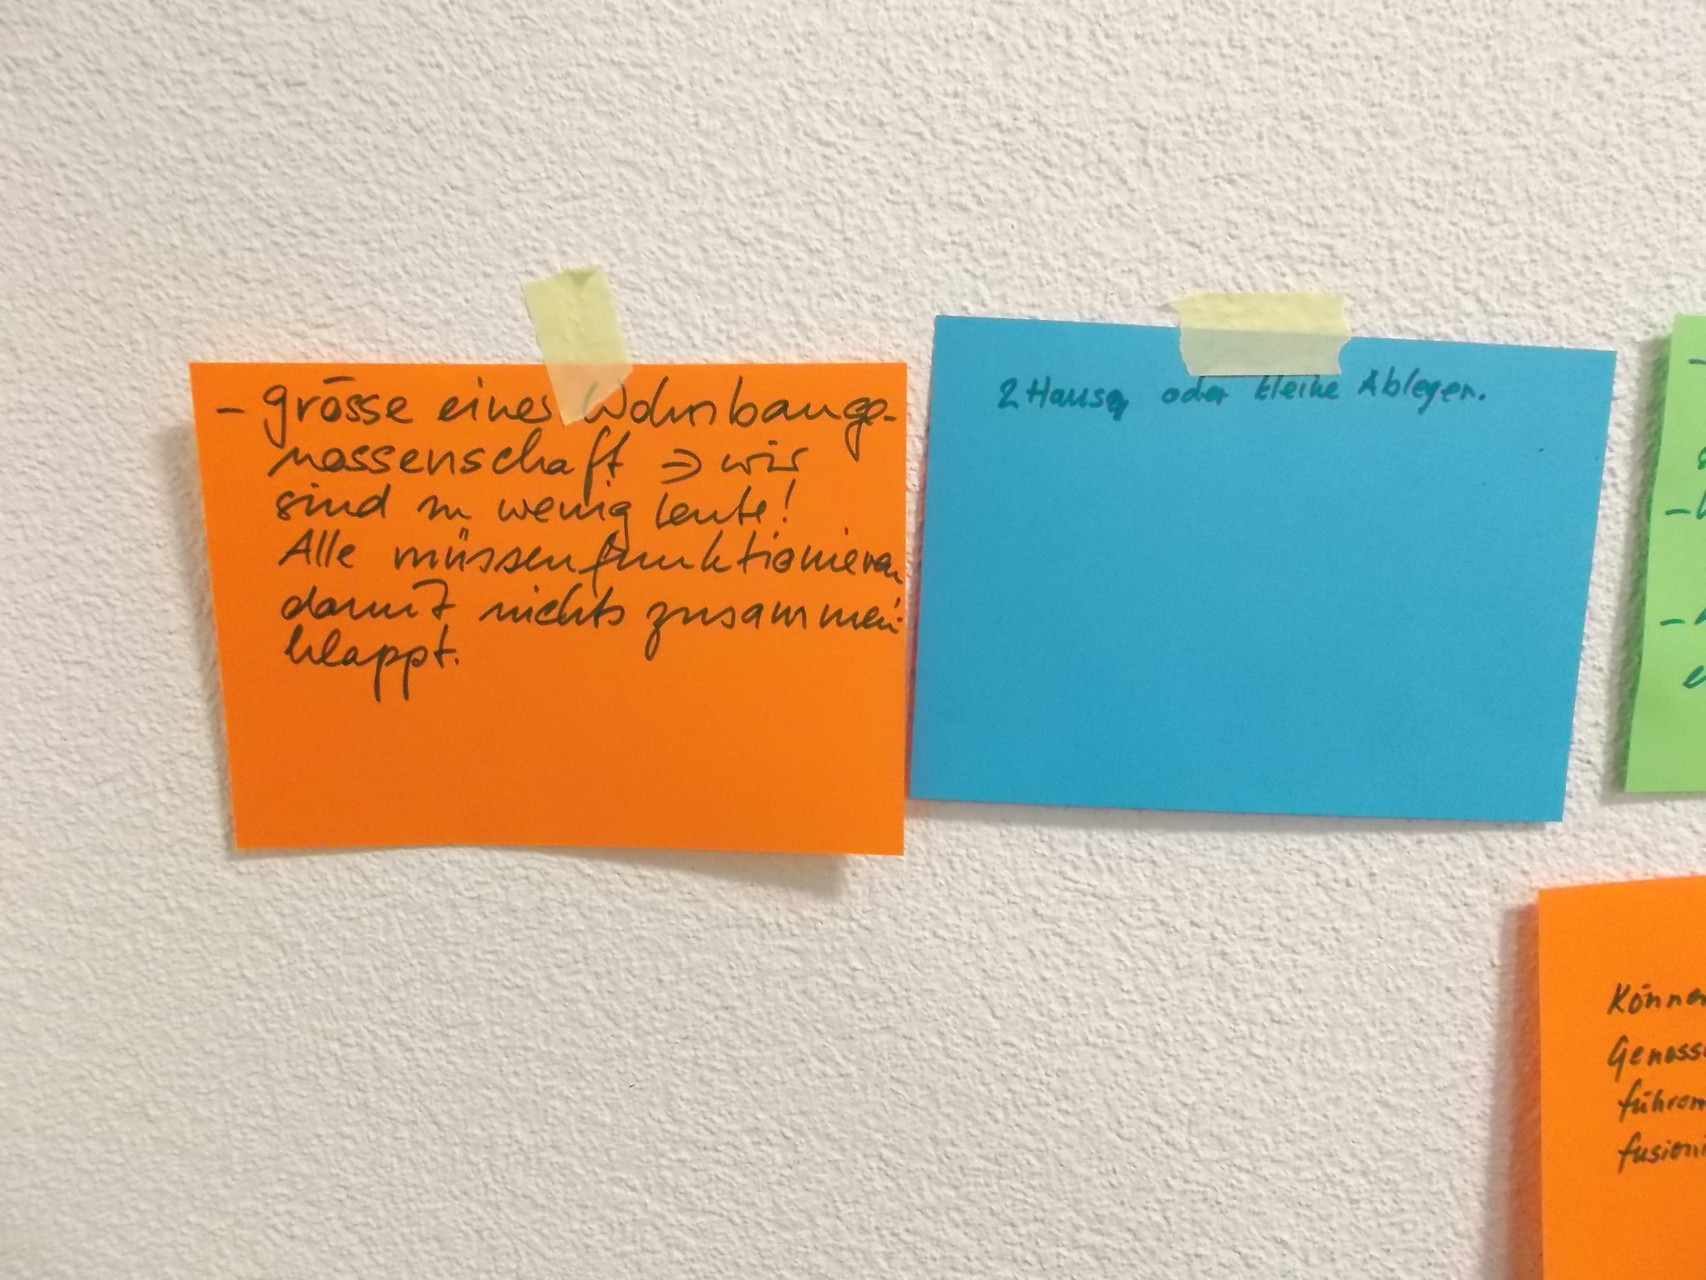 - grösse eines Wohnbauge-
nossenschaft => wir
sind zu wenig leute!
Alle müssen funktionieren
damit nichts zusammen
klappt.
2 Hauser oder kleine Ableger.
Können
Genoss
führen
fusioni